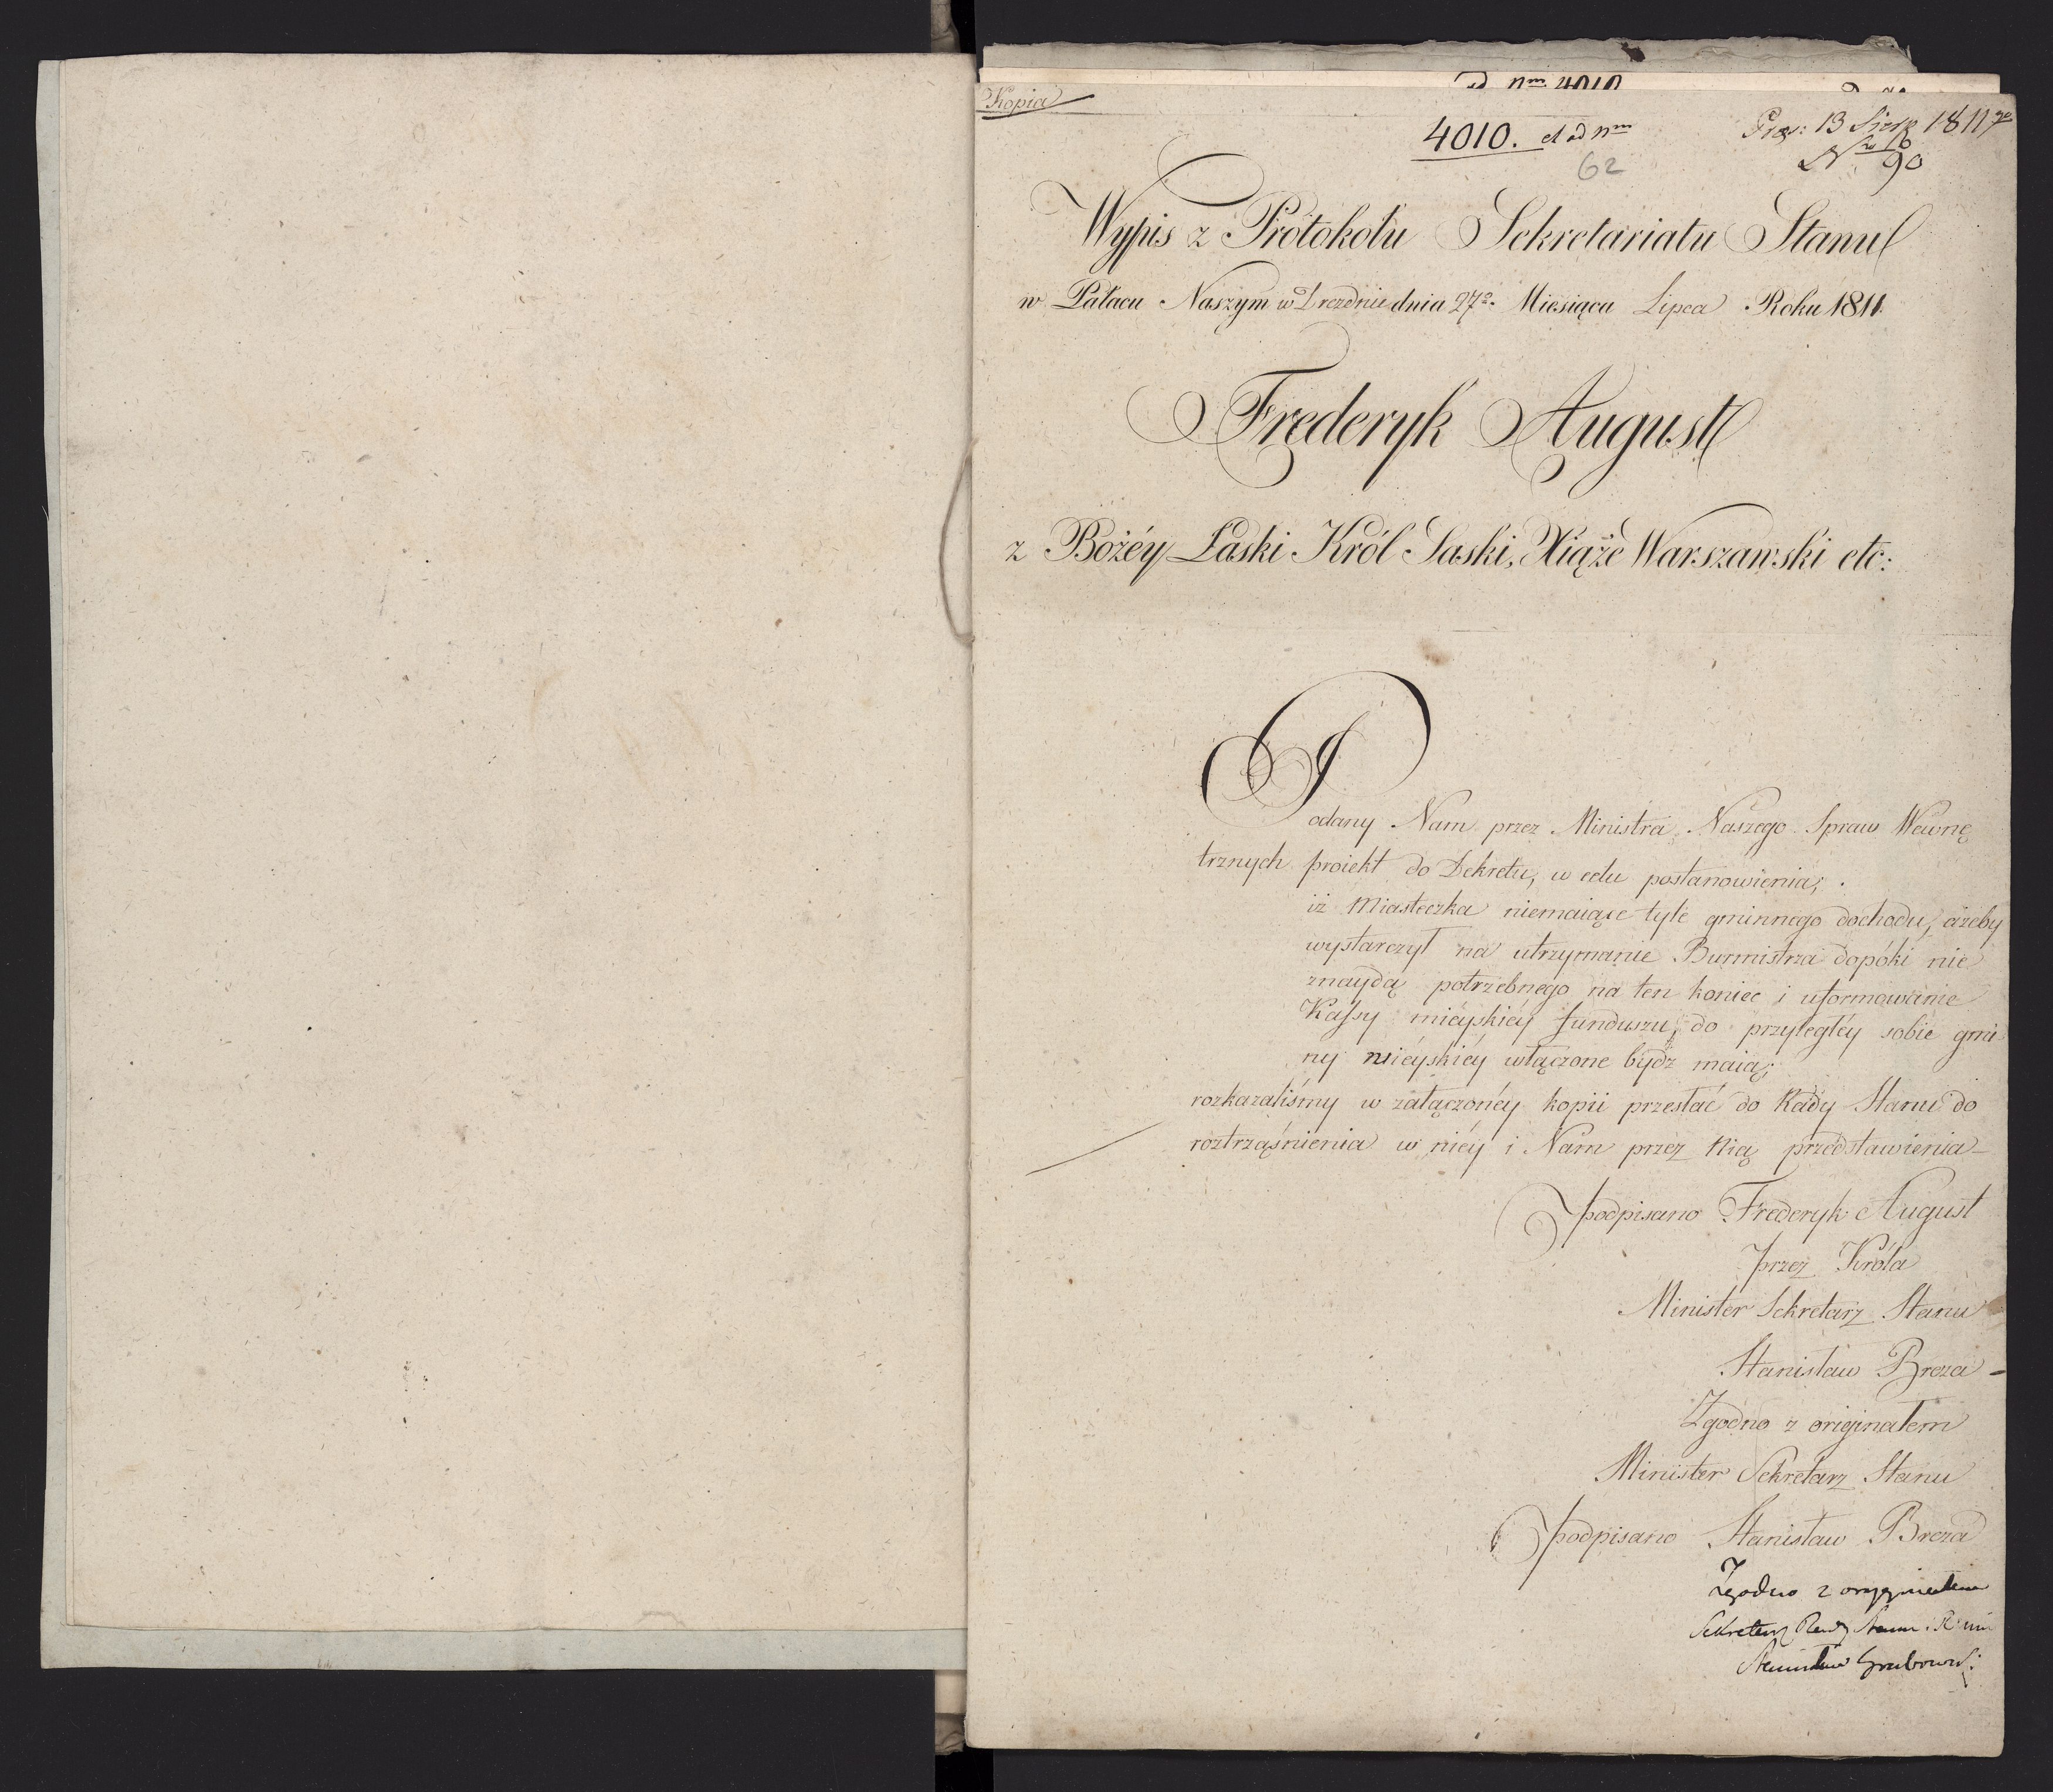 ad nm 4010
Kopia
4010. et ad nm
Prs: 13 Sierp 1811
No 90
62
Wypis z Protokołu Sekretariatu Stanu
w Pałacu Naszym w Dreznie dnia 27o. Miesiąca Lipca Roku 1811.
Frederyk August
z Bożéy Łaski Król Saski, Xiąże Warszawski etc:
Podany Nam przez Ministra Naszego Spraw Wewnę
trznych proiekt do Dekretu, w celu postanowienia;
iż Miasteczka niemaiące tyle gminnego dochodu, ażeby
wystarczył na utrzymanie Burmistrza dopóki nie
znaydą potrzebnego na ten koniec i uformowanie
Kassy miéyskiéy funduszu, do przyległéy sobie gmi
ny miéyskiéy włączone bydz maią;
rozkazaliśmy w załączonéy kopii przesłać do Rady Stanu do
roztrząśnienia w niéy i Nam przez Nią przedstawienia -
podpisano Frederyk August
przez Króla
Minister Sekretarz Stanu
Stanisław Breza -
Zgodno z originałem
Minister Sekretarz Stanu
podpisano Stanisław Breza
Zgodno z oryginałem
Sekretarz Rady Stanu
Stanisław Grabowski